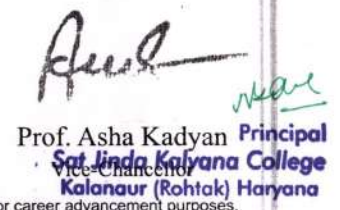 Prof. Asha Kadyan Principal
Sat Jinda Kalyana College
Vice-Chancellor
Kalanaur (Rohtak) Haryana
or career advancement purposes.